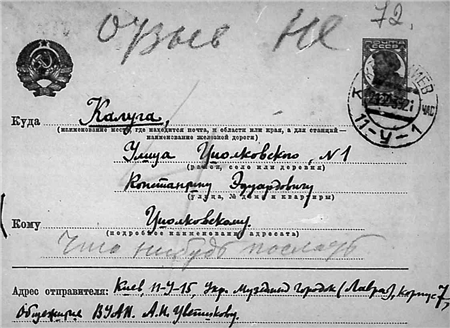 отзыв не 72.
КИЕВ
ЧАС
11-У-1
Куда Калуга,
(наименование места, где находится почта, и области или края, а для станций —
наименование железной дороги)
Улица Циолковского, №1
(район, село или деревня)
Константину Эдуардовичу
(улица, № дома и квартиры)
Кому Циолковскому
(подробное наименование адресата)
Что нибудь послать
Адрес отправителя: Киев, 11-У-15 Укр. Музейный Городок (Лавра), корпус 7,
Общежитие ВУАН. А.И. Цветикову.